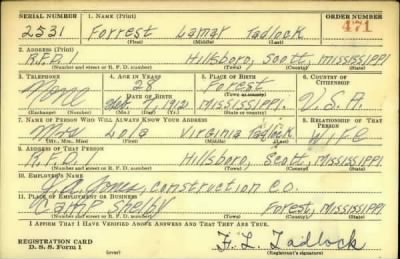 SERIAL NUMBER 1. NAME (Print) ORDER NUMBER
2531 Forrest Lamar Tadlock 471
(First) (Middle) (Last)
2. ADDRESS (Print)
R.F.D. 1 Hillsboro, Scott, Mississippi
(Number and street or R. F. D. number) (Town) (County) (State)
3. TELEPHONE 4. AGE IN YEARS 5. PLACE OF BIRTH 6. COUNTRY OF CITIZENSHIP
None 28 Forest
DATE OF BIRTH (Town or county)
7, 1912 Mississippi. U.S.A.
(Exchange) (Number) (Mo.) (Day) (Yr.) (State or country)
7. NAME OF PERSON WHO WILL ALWAYS KNOW YOUR ADDRESS 8. RELATIONSHIP OF THAT PERSON
Mrs Lola Virginia Tadlock Wife
(Mr., Mrs., Miss) (First) (Middle) (Last)
9. ADDRESS OF THAT PERSON
R.F.D. 1 Hillsboro, Scott, Mississippi
(Number and street or R. F. D. number) (Town) (County) (State)
10. EMPLOYER'S NAME
J.A. Jones Construction Co.
11. PLACE OF EMPLOYMENT OR BUSINESS
Camp Shelby Forest, Mississippi
(Number and street or R. F. D. number) (Town) (County) (State)
I AFFIRM THAT I HAVE VERIFIED ABOVE ANSWERS AND THAT THEY ARE TRUE.
REGISTRATION CARD F. L. Tadlock
D. S. S. Form 1 (over) (Registrant's signature)